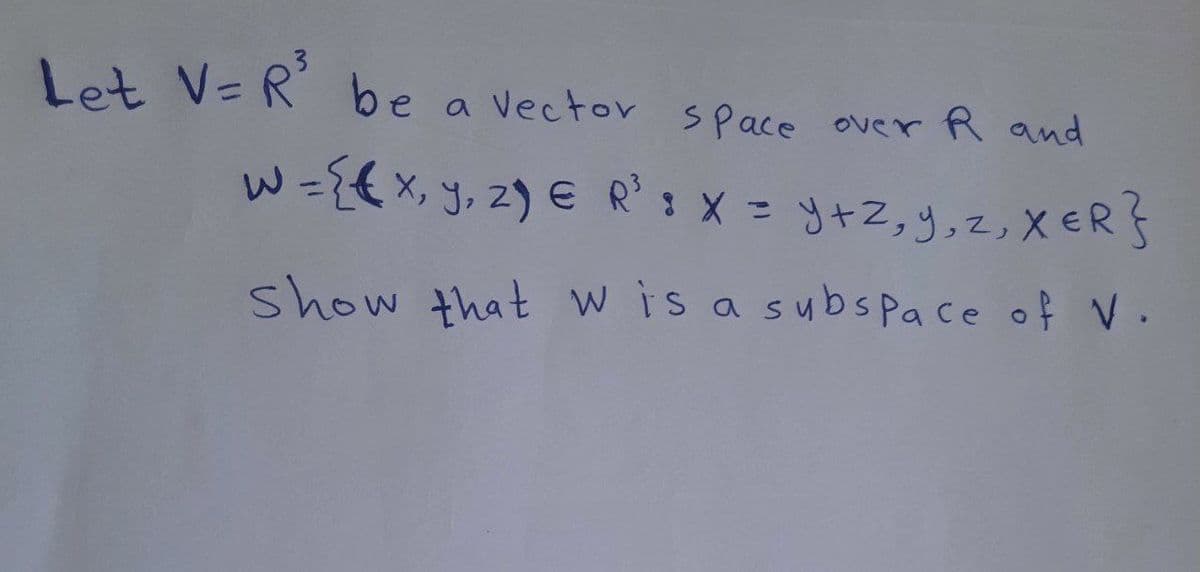 Let V= R³ be a vector space over R and
W = {(x, y, z) ∈ R³ : x = y+z, y, z, x ∈ R}
show that w is a subspace of V.